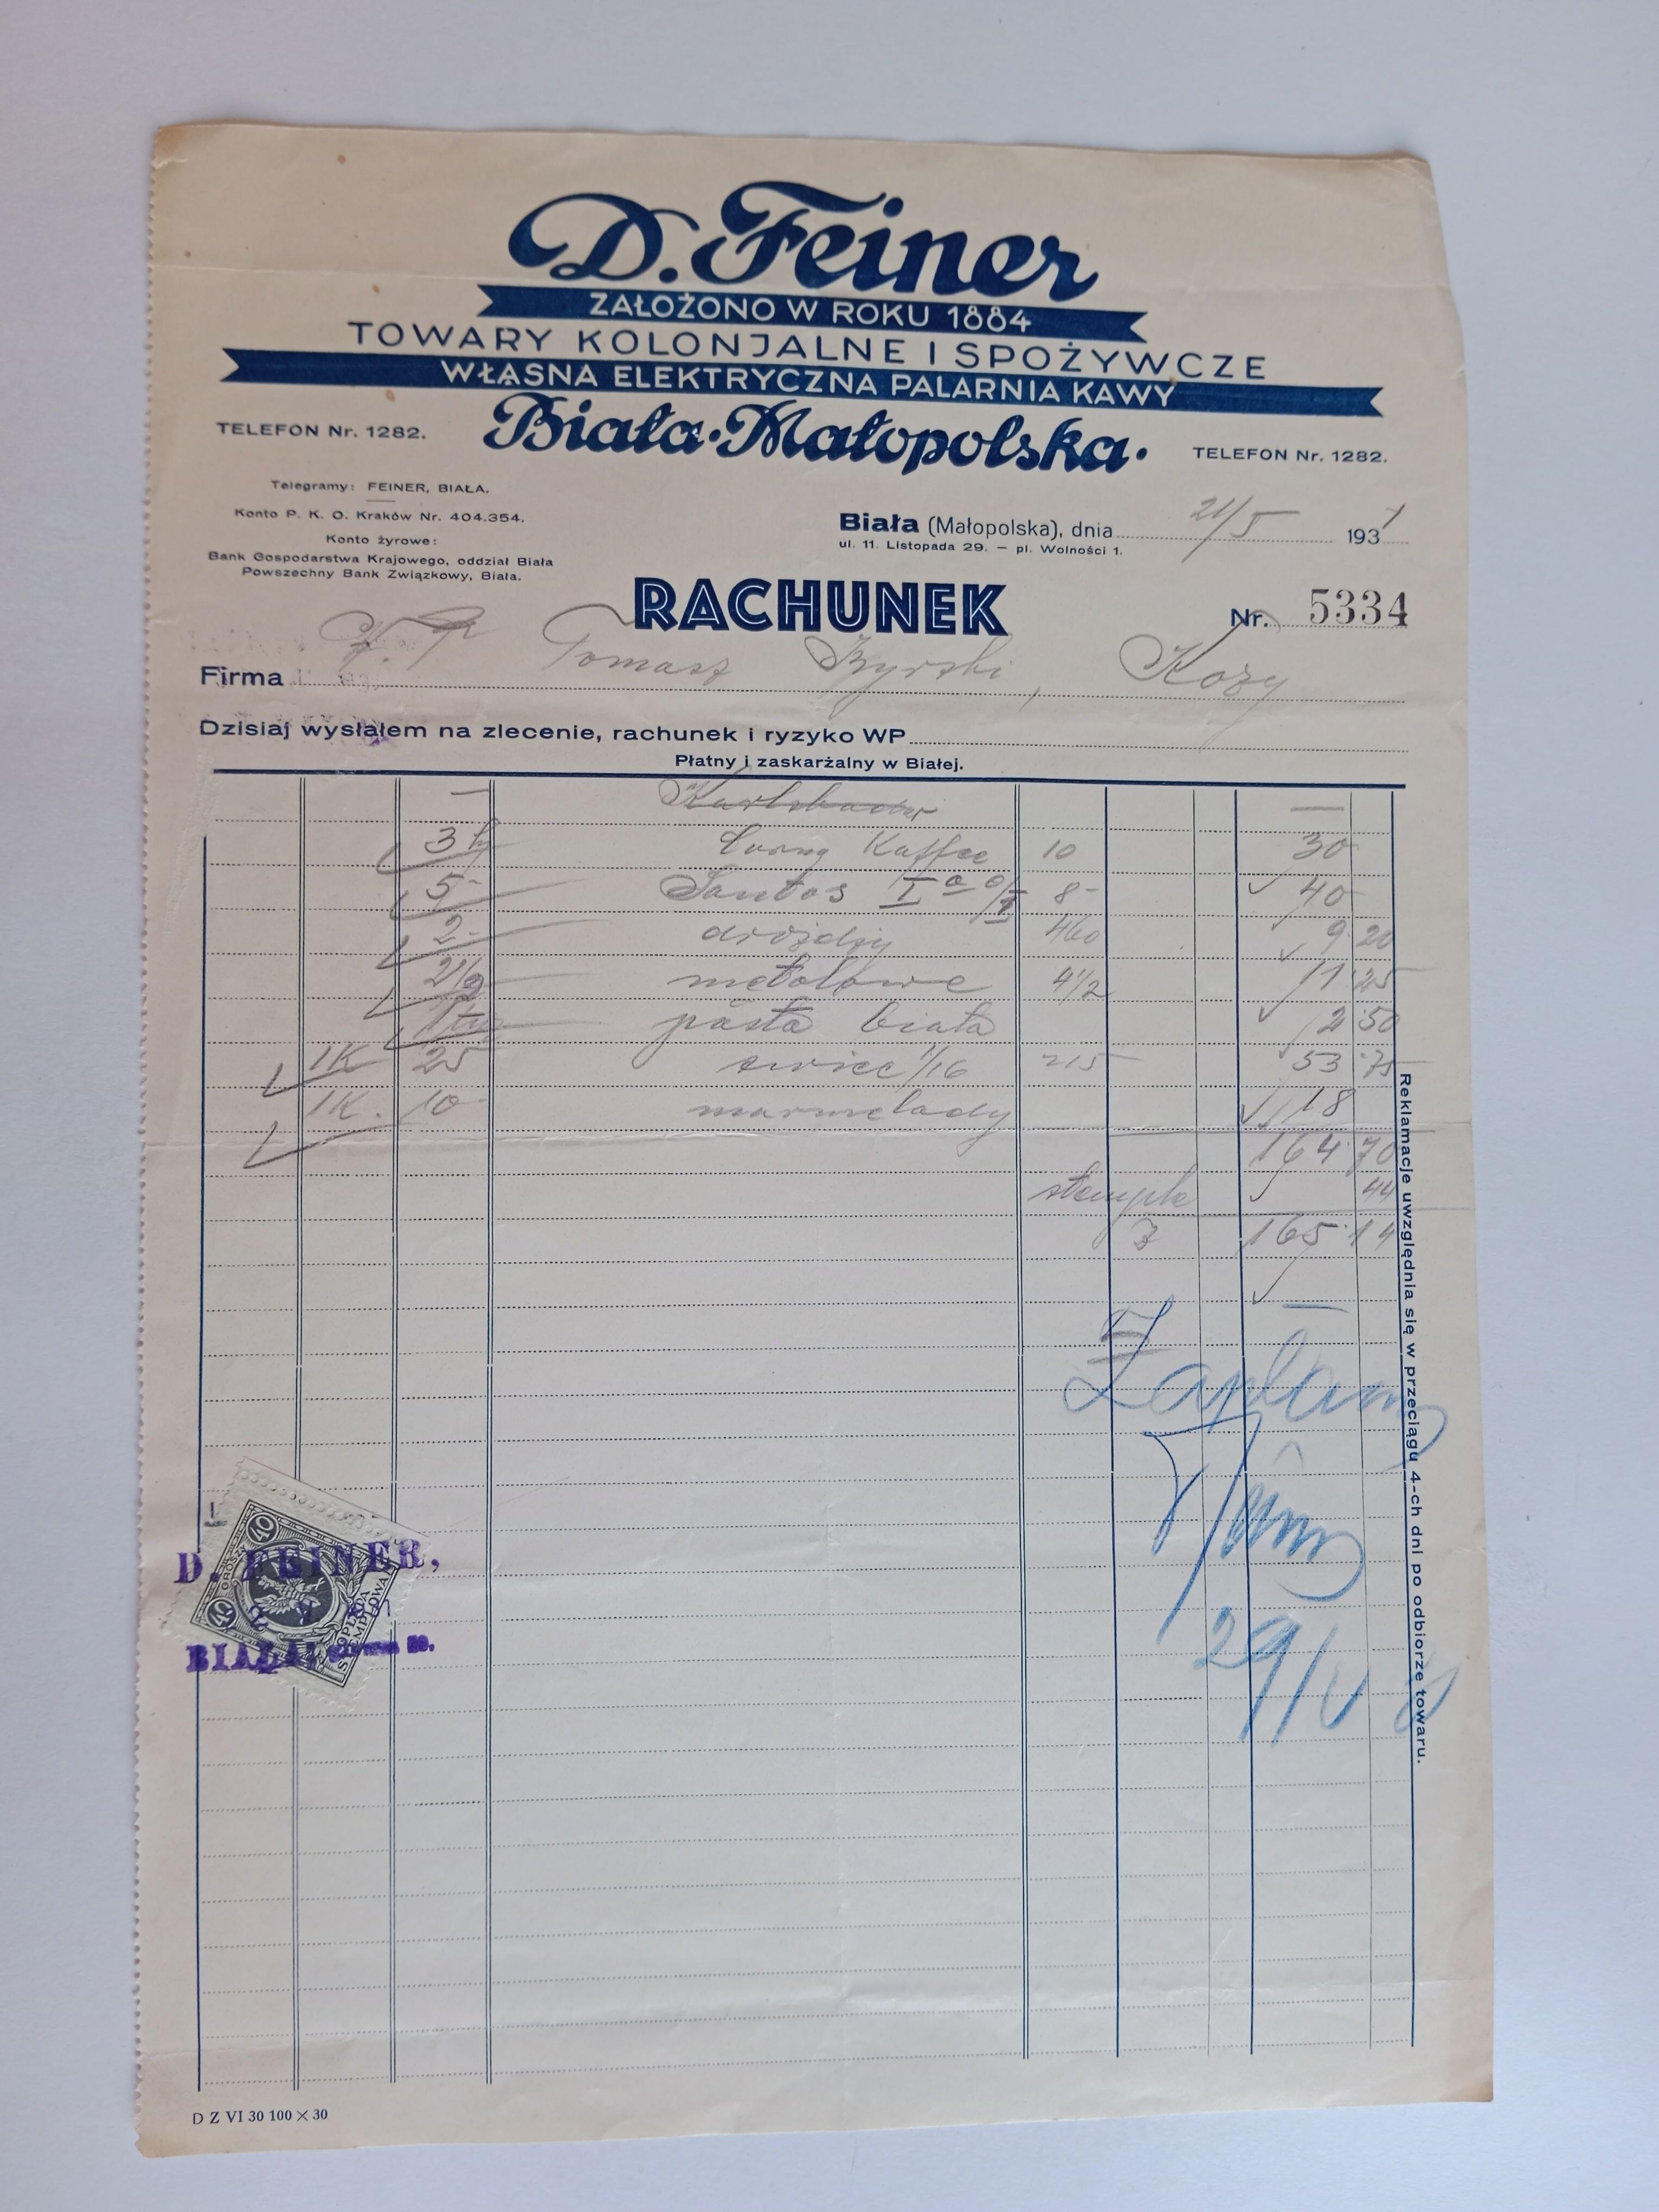 D. Feiner
ZAŁOŻONO W ROKU 1884
TOWARY KOLONJALNE I SPOŻYWCZE
WŁASNA ELEKTRYCZNA PALARNIA KAWY
Biała·Małopolska·
TELEFON Nr. 1282.
TELEFON Nr. 1282.
Telegramy: FEINER, BIAŁA.
Konto P. K. O. Kraków Nr. 404.354.
Konto żyrowe:
Bank Gospodarstwa Krajowego, oddział Biała
Powszechny Bank Związkowy, Biała.
Biała (Małopolska), dnia 21/5 1931
ul. 11. Listopada 29. — pl. Wolności 1.
RACHUNEK
Nr. 5334
Firma Tomasz Byrski, Kozy
Dzisiaj wysłałem na zlecenie, rachunek i ryzyko WP
Płatny i zaskarżalny w Białej.
Karlsbader
3 kg Kaffee 10 30
5- Santos Ia 8- 40
2- drożdży 460 9 20
2 1/2 metolowe 4 1/2 11 25
pasta biała 2 50
1K 25 swiec 1/16 215 53 75
1K. 10 marmelady 18
164 70
stemple 44
165 14
29/V
Reklamacje uwzględnia się w przeciągu 4-ch dni po odbiorze towaru.
40 GROSZY 40
OPŁATA STEMPLOWA
D. FEINER,
BIAŁA,
D Z VI 30 100 × 30